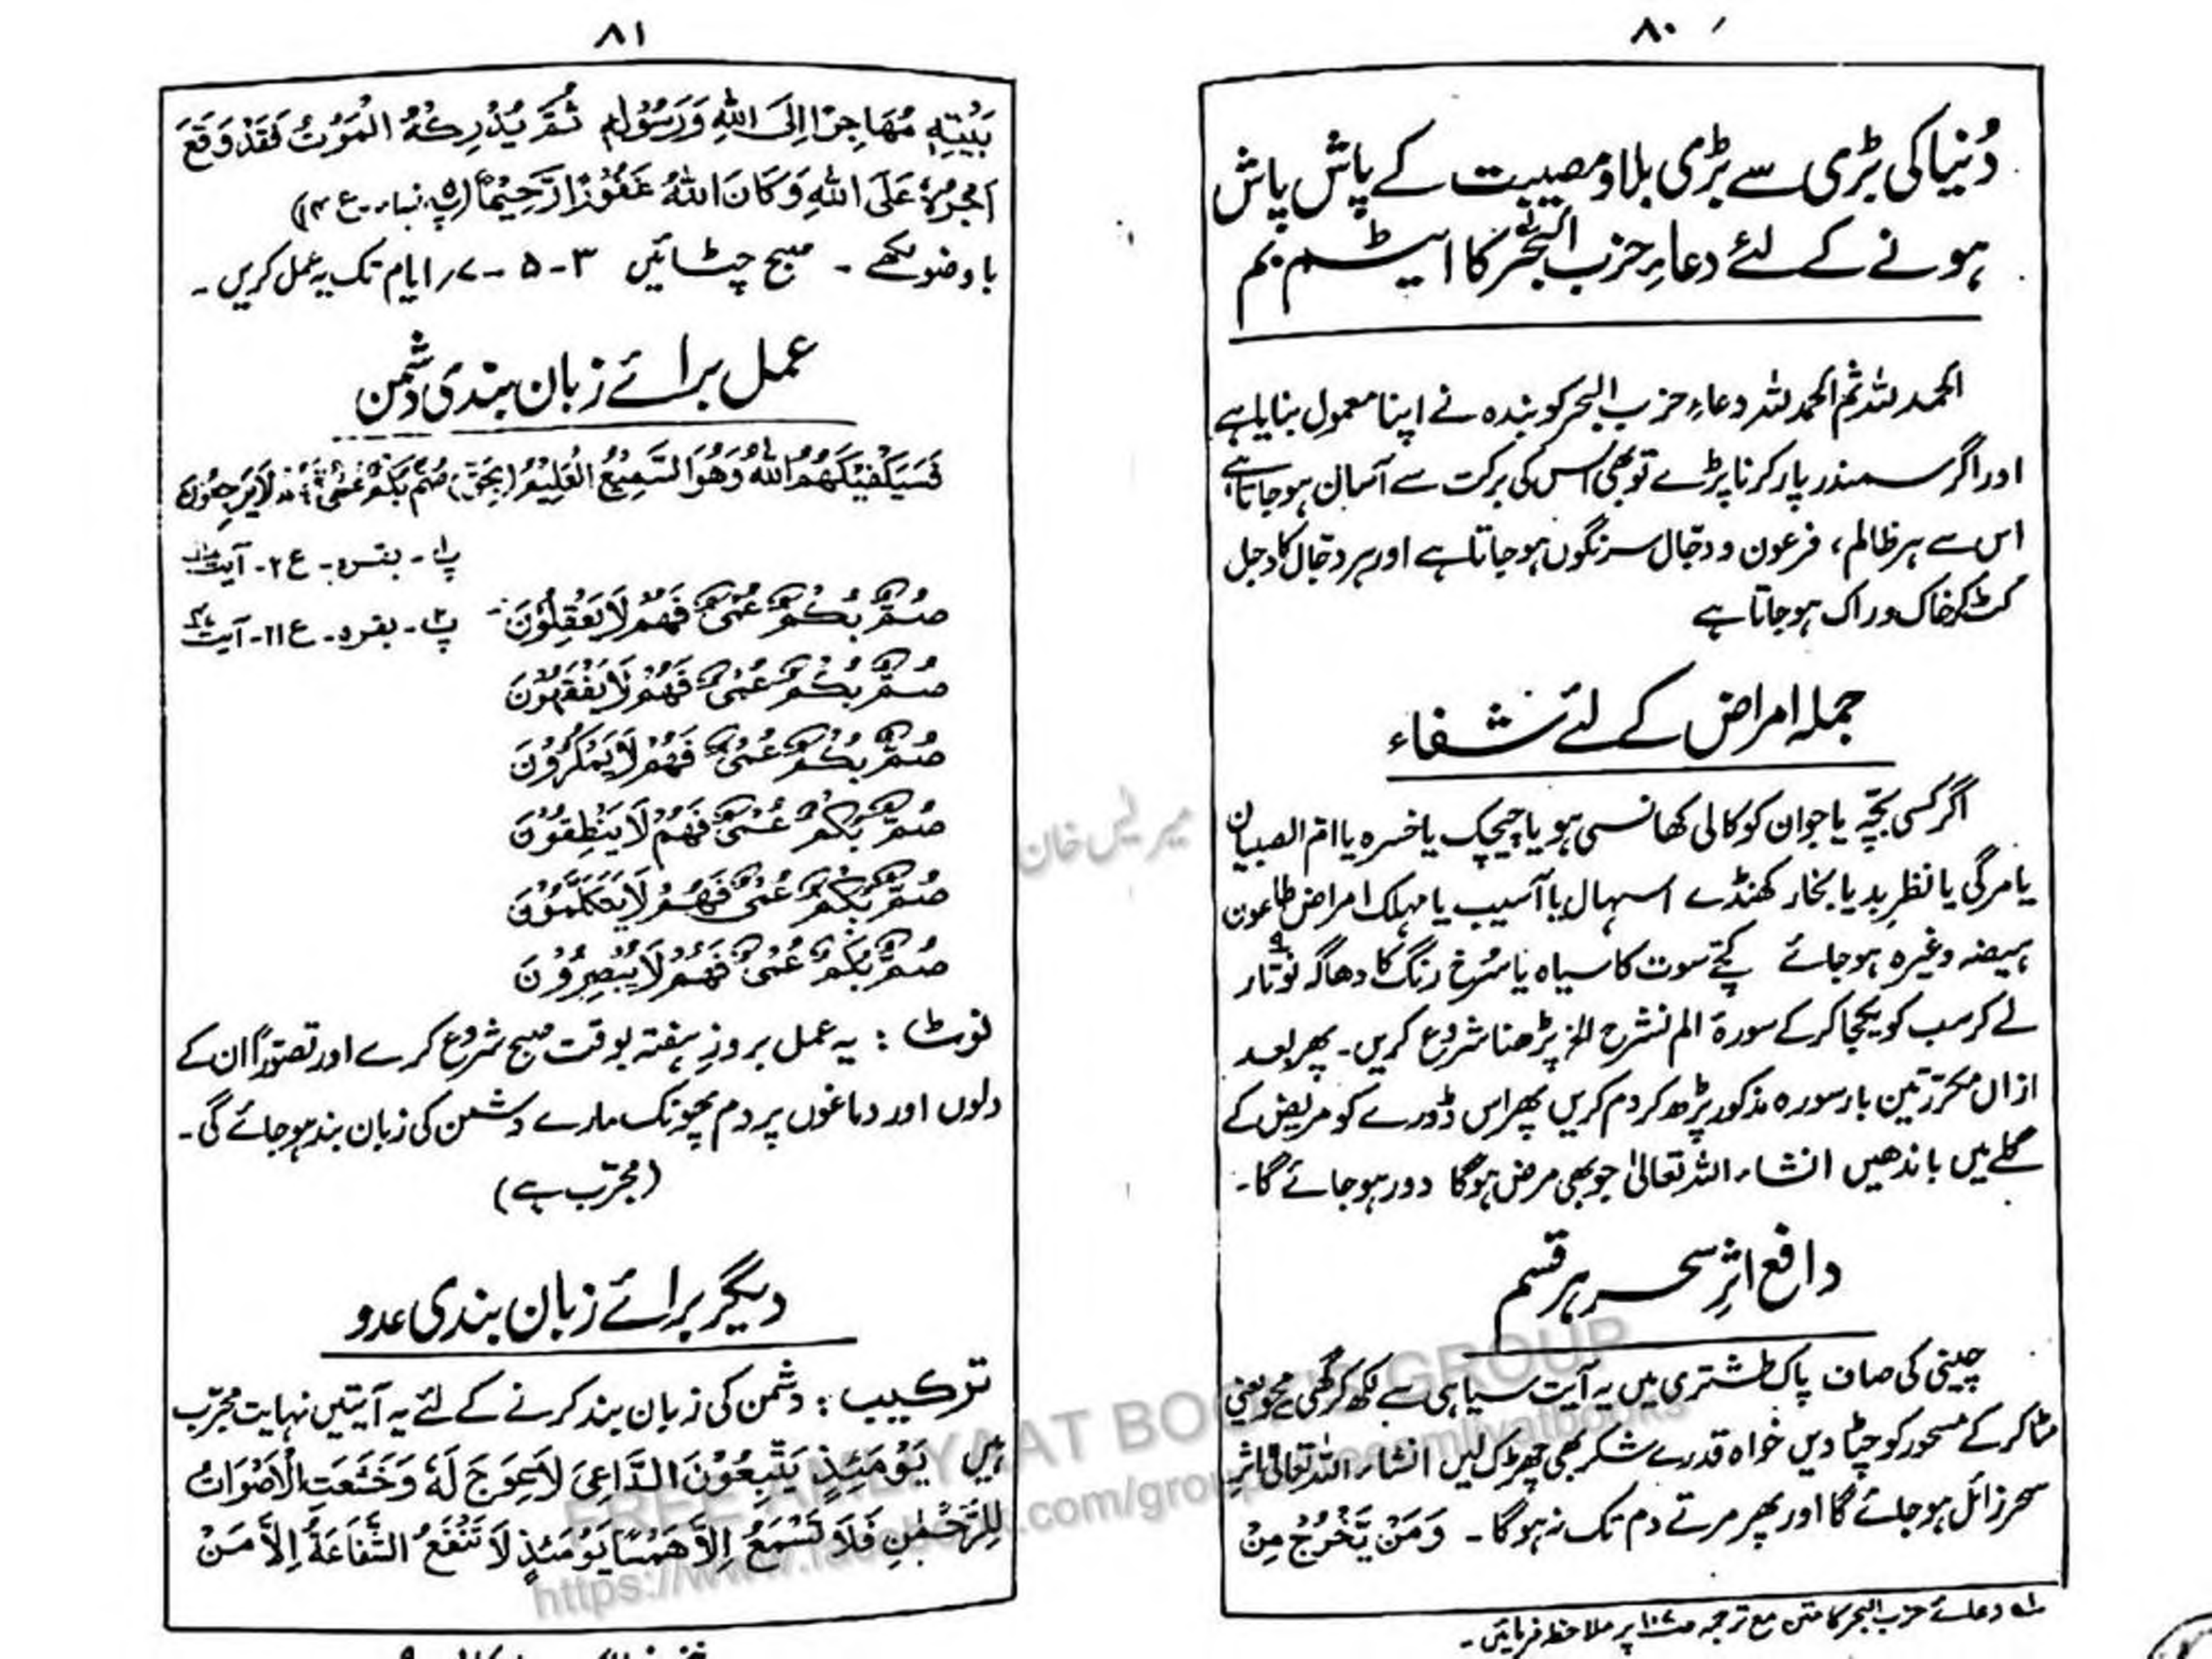 ۸۰
دُنیا کی بڑی سے بڑی بلا و مصیبت کے پاش پاش
ہونے کے لئے دعاءِ حزب البحر کا ایٹم بم
الحمد للہ ثم الحمد للہ دعاءِ حزب البحر کو بندہ نے اپنا معمول بنایا ہے
اور اگر سمندر پار کرنا پڑے تو بھی اس کی برکت سے آسان ہو جاتا ہے
اس سے ہر ظالم، فرعون و دجّال سرنگوں ہو جاتا ہے اور ہر دجّال کا دجل
کٹ کر خاک و راک ہو جاتا ہے
جملہ امراض کے لئے شفاء
اگر کسی بچّہ یا جوان کو کالی کھانسی ہو یا چیچک یا خسرہ یا ام الصبیان
یا مرگی یا نظرِ بد یا بخار کھنڈے اسہال یا آسیب یا مہلک امراض طاعون
ہیضہ وغیرہ ہو جائے کچے سوت کا سیاہ یا سُرخ رنگ کا دھاگہ نو ۹ تار
لے کر سب کو یکجا کر کے سورۃ الم نشرح الخ پڑھنا شروع کریں۔ پھر بعد
ازاں مکرّر تین بار سورہ مذکور پڑھ کر دم کریں پھر اس ڈورے کو مریض کے
گلے میں باندھیں انشاء اللہ تعالیٰ جو بھی مرض ہو گا دور ہو جائے گا۔
دافع اثرِ سحر ہر قسم
چینی کی صاف پاک طشتری میں یہ آیت سیاہی سے لکھ کر گھی سے محو یعنی
مٹا کر کے مسحور کو چٹا دیں خواہ قدرے شکر بھی چھڑک لیں انشاء اللہ تعالیٰ اثرِ
سحر زائل ہو جائے گا اور پھر مرتے دم تک نہ ہو گا۔ وَمَنْ يَّخْرُجْ مِنْ
لہ دعائے حزب البحر کا متن مع ترجمہ صـ۱۰۷ پر ملاحظہ فرمائیں۔
۸۱
بَيْتِهٖ مُهَاجِرًا اِلَى اللّٰهِ وَرَسُوْلِهٖ ثُمَّ يُدْرِكْهُ الْمَوْتُ فَقَدْ وَقَعَ
اَجْرُهٗ عَلَى اللّٰهِ وَكَانَ اللّٰهُ غَفُوْرًا رَّحِيْمًا (پ۵، نساء۔ ع ۱۴)
با وضو لکھے۔ صبح چٹائیں ۳-۵-۷ ایام تک یہ عمل کریں۔
عمل برائے زبان بندی دشمن
فَسَيَكْفِيْكَهُمُ اللّٰهُ وَهُوَ السَّمِيْعُ الْعَلِيْمُ (بحق) صُمٌّۢ بُكْمٌ عُمْىٌ فَهُمْ لَا يَرْجِعُوْنَ
پ۱۔ بقرہ۔ ع ۲۔ آیت ۱۸
صُمٌّۢ بُكْمٌ عُمْىٌ فَهُمْ لَا يَعْقِلُوْنَ پ۲۔ بقرہ۔ ع ۲۱۔ آیت
صُمٌّۢ بُكْمٌ عُمْىٌ فَهُمْ لَا يَفْقَهُوْنَ
صُمٌّۢ بُكْمٌ عُمْىٌ فَهُمْ لَا يَمْكُرُوْنَ
صُمٌّۢ بُكْمٌ عُمْىٌ فَهُمْ لَا يَنْطِقُوْنَ
صُمٌّۢ بُكْمٌ عُمْىٌ فَهُمْ لَا يَتَكَلَّمُوْنَ
صُمٌّۢ بُكْمٌ عُمْىٌ فَهُمْ لَا يُبْصِرُوْنَ
نوٹ: یہ عمل بروز ہفتہ بوقت صبح شروع کرے اور تصوّراً ان کے
دلوں اور دماغوں پر دم پھونک مارے دشمن کی زبان بند ہو جائے گی۔
(مجرّب ہے)
دیگر برائے زبان بندی عدو
ترکیب: دشمن کی زبان بند کرنے کے لئے یہ آیتیں نہایت مجرّب
ہیں يَوْمَئِذٍ يَّتَّبِعُوْنَ الدَّاعِىَ لَا عِوَجَ لَهٗ وَخَشَعَتِ الْاَصْوَاتُ
لِلرَّحْمٰنِ فَلَا تَسْمَعُ اِلَّا هَمْسًا يَوْمَئِذٍ لَّا تَنْفَعُ الشَّفَاعَةُ اِلَّا مَنْ
میر لیس خان
FREE AMLIYAAT BOOKS GROUP
https://www.facebook.com/groups/freeamliyatbooks